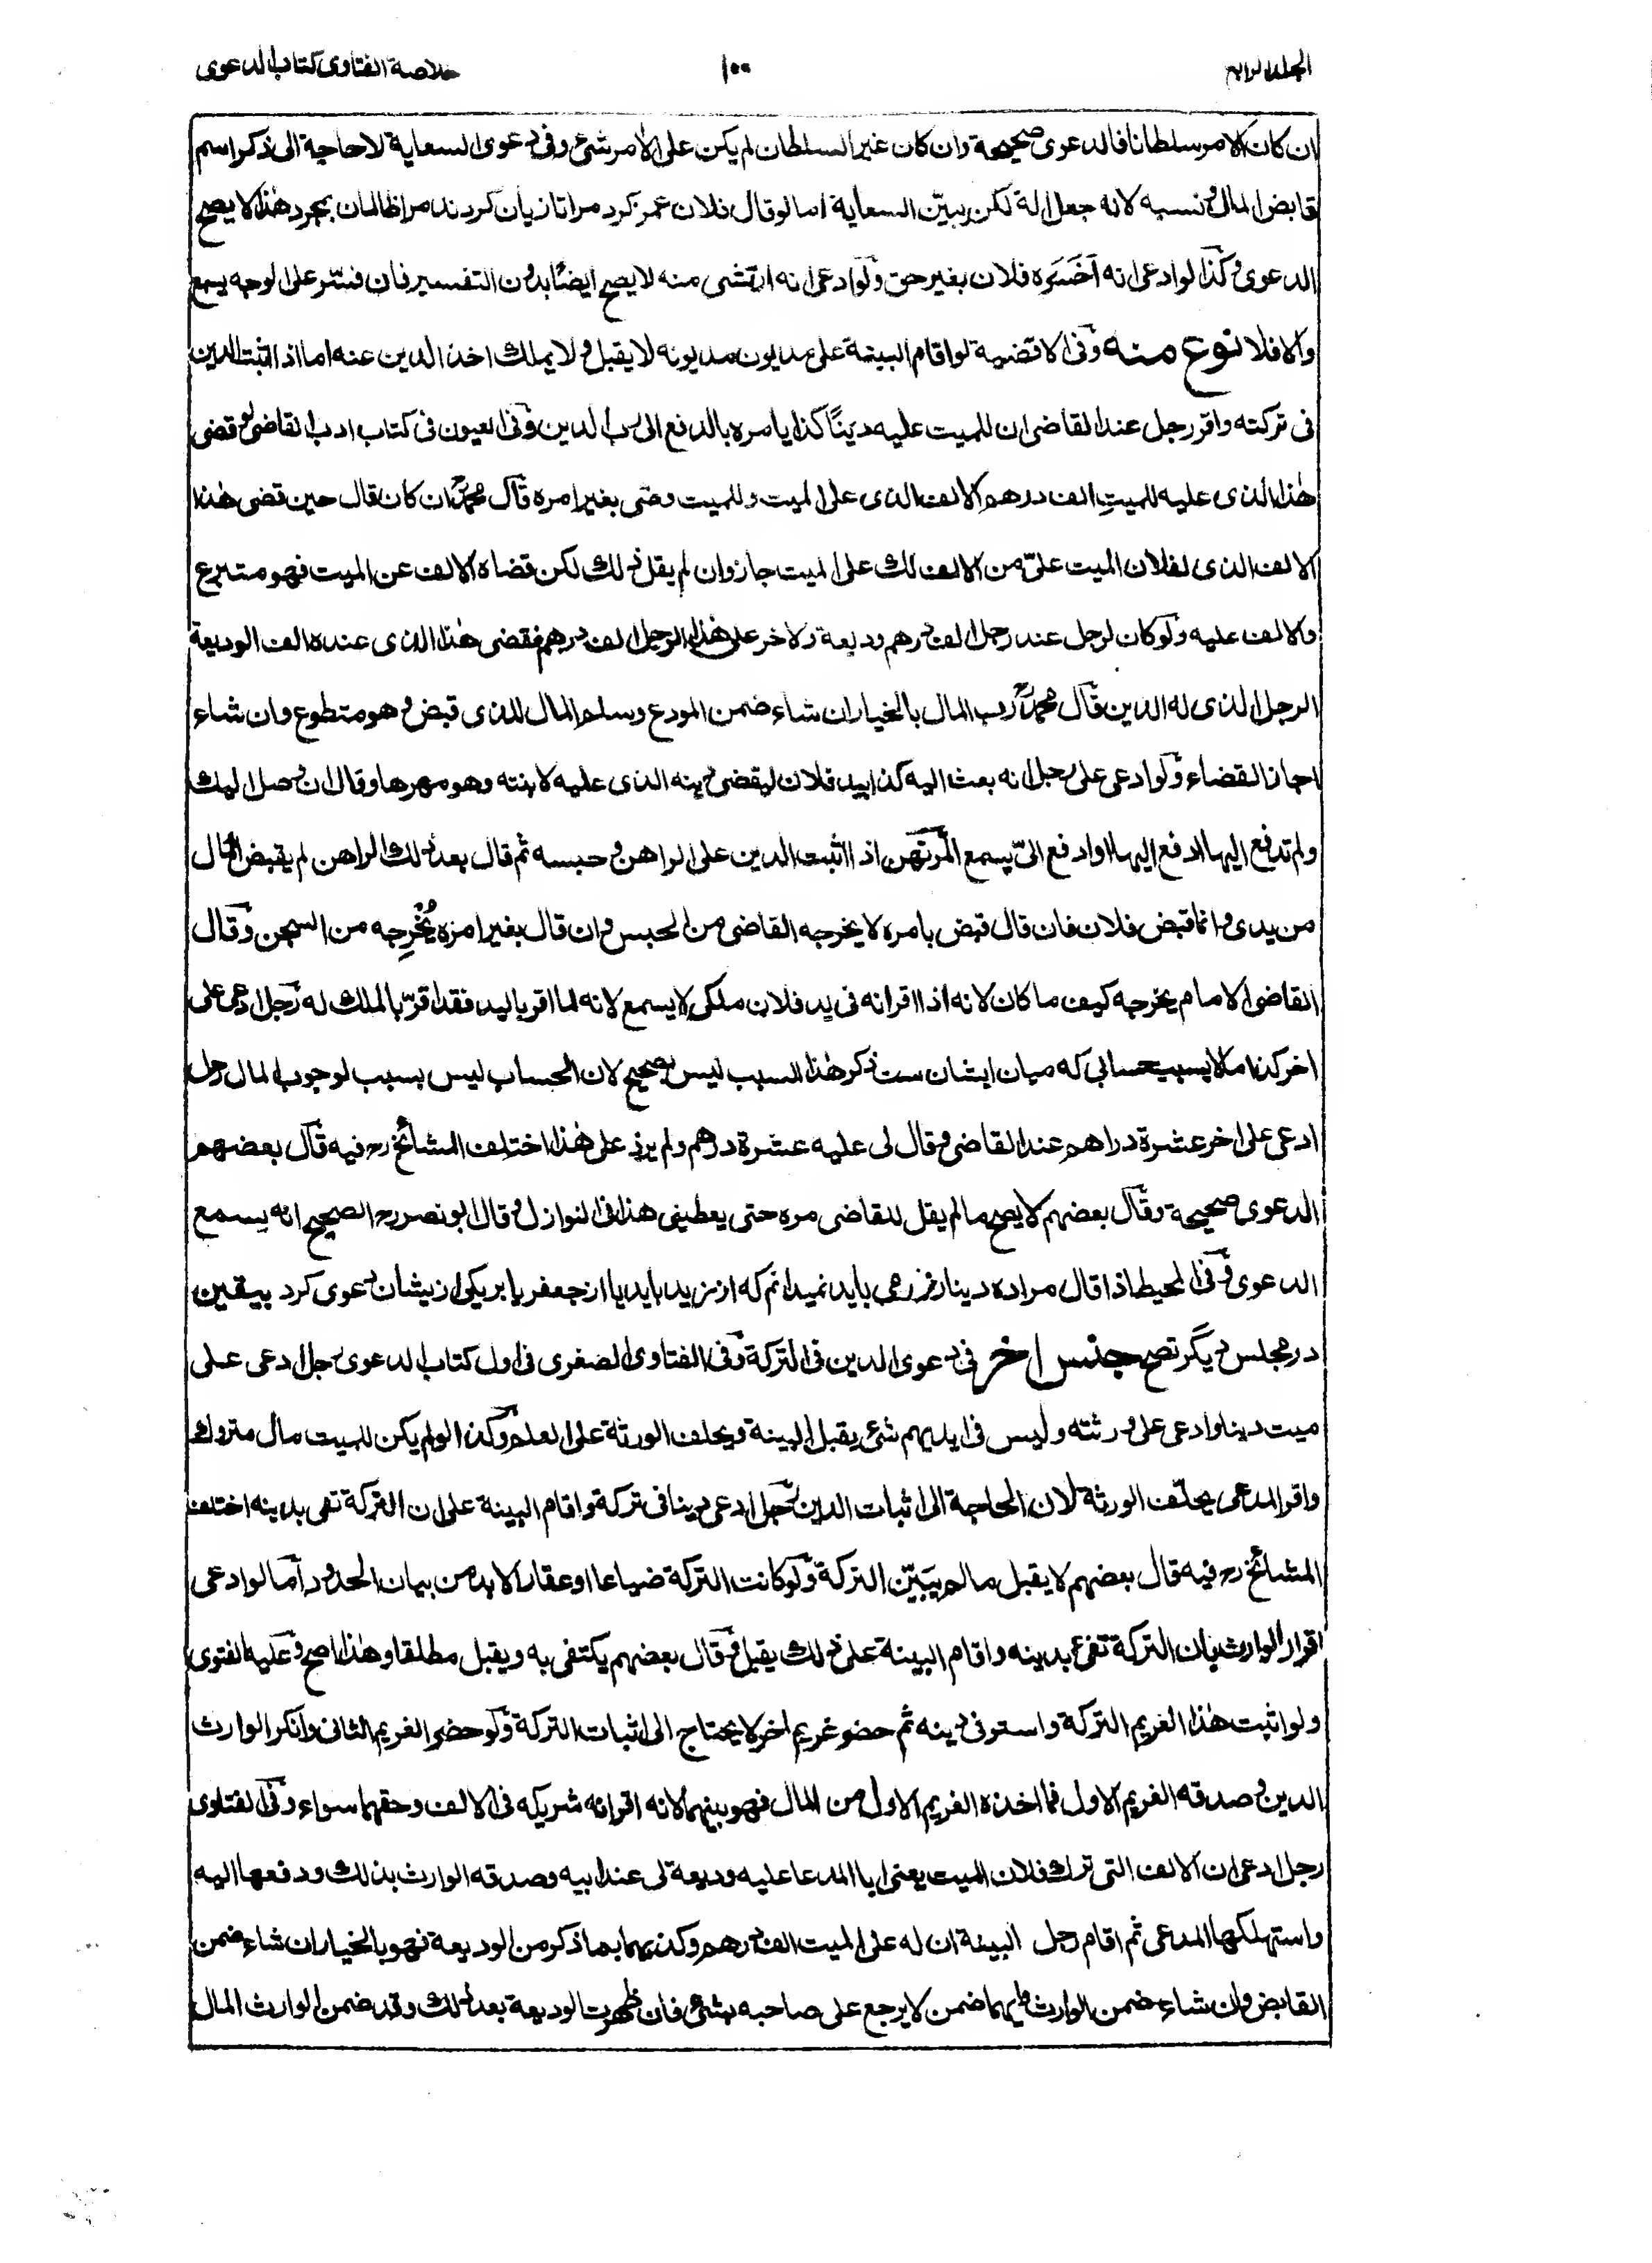 الجلد الرابع ١٠٠ خلاصة الفتاوى كتاب الدعوى
ان كان الامر سلطانا فالدعوى صحيحة وان كان غير السلطان لم يكن على الأمر شئ وفى دعوى السعاية لا حاجة الى ذكر اسم
قابض المال ونسبه لانه جعل الة لكن يبيّن السعاية اما لو قال فلان عمر كرد مرا تا زيان كردند مرا ظالمان بمجرد هذا لا يصح
الدعوى وكذا لو ادعى انه اَخسَرَه فلان بغير حق ولو ادعى انه ارتشى منه لا يصح ايضًا بدون التفسير فان فسّر على الوجه يسمع
والا فلا نوع منه وفى الاقضية لو اقام البينة على مديون مديونه لا يقبل ولا يملك اخذ الدين عنه اما اذا اثبت الدين
فى تركته واقر رجل عند القاضى ان للميت عليه دينًا كذا يامره بالدفع الى رب الدين وفى العيون فى كتاب ادب القاضى لو قضى
هذا الذى عليه للميتِ الف درهم الالف الذى على الميت وللميت وصى بغير امره قال محمدؒ ان كان قال حين قضى هذا
الالف الذى لفلان الميت علىّ من الالف لك على الميت جاز وان لم يقل ذلك لكن قضاه الالف عن الميت فهو متبرع
والالف عليه ولو كان لرجل عند رجل الف درهم وديعة ولاخر على هذا الرجل الف درهم فقضى هذا الذى عنده الف الوديعة
الرجل الذى له الدين قال محمدؒ رب المال بالخيار ان شاء ضمن المودع وسلم المال للذى قبض وهو متطوع وان شاء
اجاز القضاء ولو ادعى على رجل انه بعث اليه كذا بيد فلان ليقضى دينه الذى عليه لابنته وهو مهرها وقال ان وصل اليك
ولم تدفع اليها ادفع اليها او ادفع الىّ يسمع المرتهن اذا اثبت الدين على الراهن وحبسه ثم قال بعد ذلك الراهن لم يقبض المال
من يدى وانما قبض فلان فان قال قبض بامره لا يخرجه القاضى من الحبس وان قال بغير امره يُخرِجه من السجن وقال
القاضى الامام يخرجه كيف ما كان لانه اذا اقر انه فى يد فلان ملكى لا يسمع لانه لما اقر باليد فقد اقرّ بالملك له رجل ادعى على
اخر كذا مالا بسبب حسابى كه ميان ايشان ست ذكر هذا السبب ليس بصحيح لان الحساب ليس بسبب لوجوب المال رجل
ادعى على اخر عشرة دراهم عند القاضى وقال لى عليه عشرة درهم ولم يزد على هذا اختلف المشائخ رح فيه قال بعضهم
الدعوى صحيحة وقال بعضهم لا يصح ما لم يقل للقاضى مره حتى يعطينى هذا فى النوازل وقال ابو نصر رح الصحيح انه يسمع
الدعوى وفى المحيط اذا قال مرا ده دينار زر مى بايد نميدانم كه از زيد بايد يا از جعفر يا بر يكى ازيشان دعوى كرد بيقين
در مجلس ديگر تصح جنس اخر فى دعوى الدين فى التركة وفى الفتاوى الصغرى فى اول كتاب الدعوى رجل ادعى على
ميت دينا وادعى على ورثته وليس فى ايديهم شئ يقبل البينة ويحلف الورثة على العلم وكذا لو لم يكن للميت مال متروك
واقر المدعى يحلّف الورثة لان الحاجة الى اثبات الدين رجل ادعى دينا فى تركة واقام البينة على ان التركة تفى بدينه اختلف
المشائخ رح فيه قال بعضهم لا يقبل ما لم يبيّن التركة ولو كانت التركة ضياعا او عقارا لا بد من بيان الحدود اما لو ادعى
اقرار الوارث بان التركة تفى بدينه واقام البينة على ذلك يقبل وقال بعضهم يكتفى به ويقبل مطلقا وهذا اصح وعليه الفتوى
ولو اثبت هذا الغريم التركة واستوفى دينه ثم حضر غريم اخر لا يحتاج الى اثبات التركة ولو حضر الغريم الثانى وانكر الوارث
الدين وصدقه الغريم الاول فما اخذه الغريم الاول من المال فهو بينهما لانه اقر انه شريكه فى الالف وحقهما سواء وفى الفتاوى
رجل ادعى ان الالف التى ترك فلان الميت يعنى ابا المدعا عليه وديعة لى عند ابيه وصدقه الوارث بذلك ودفعها اليه
واستهلكها المدعى ثم اقام رجل البينة ان له على الميت الف درهم وكذبهما بما ذكر من الوديعة فهو بالخيار ان شاء ضمن
القابض وان شاء ضمن الوارث وايهما ضمن لا يرجع على صاحبه بشئ فان ظهرت الوديعة بعد ذلك وقد ضمن الوارث المال